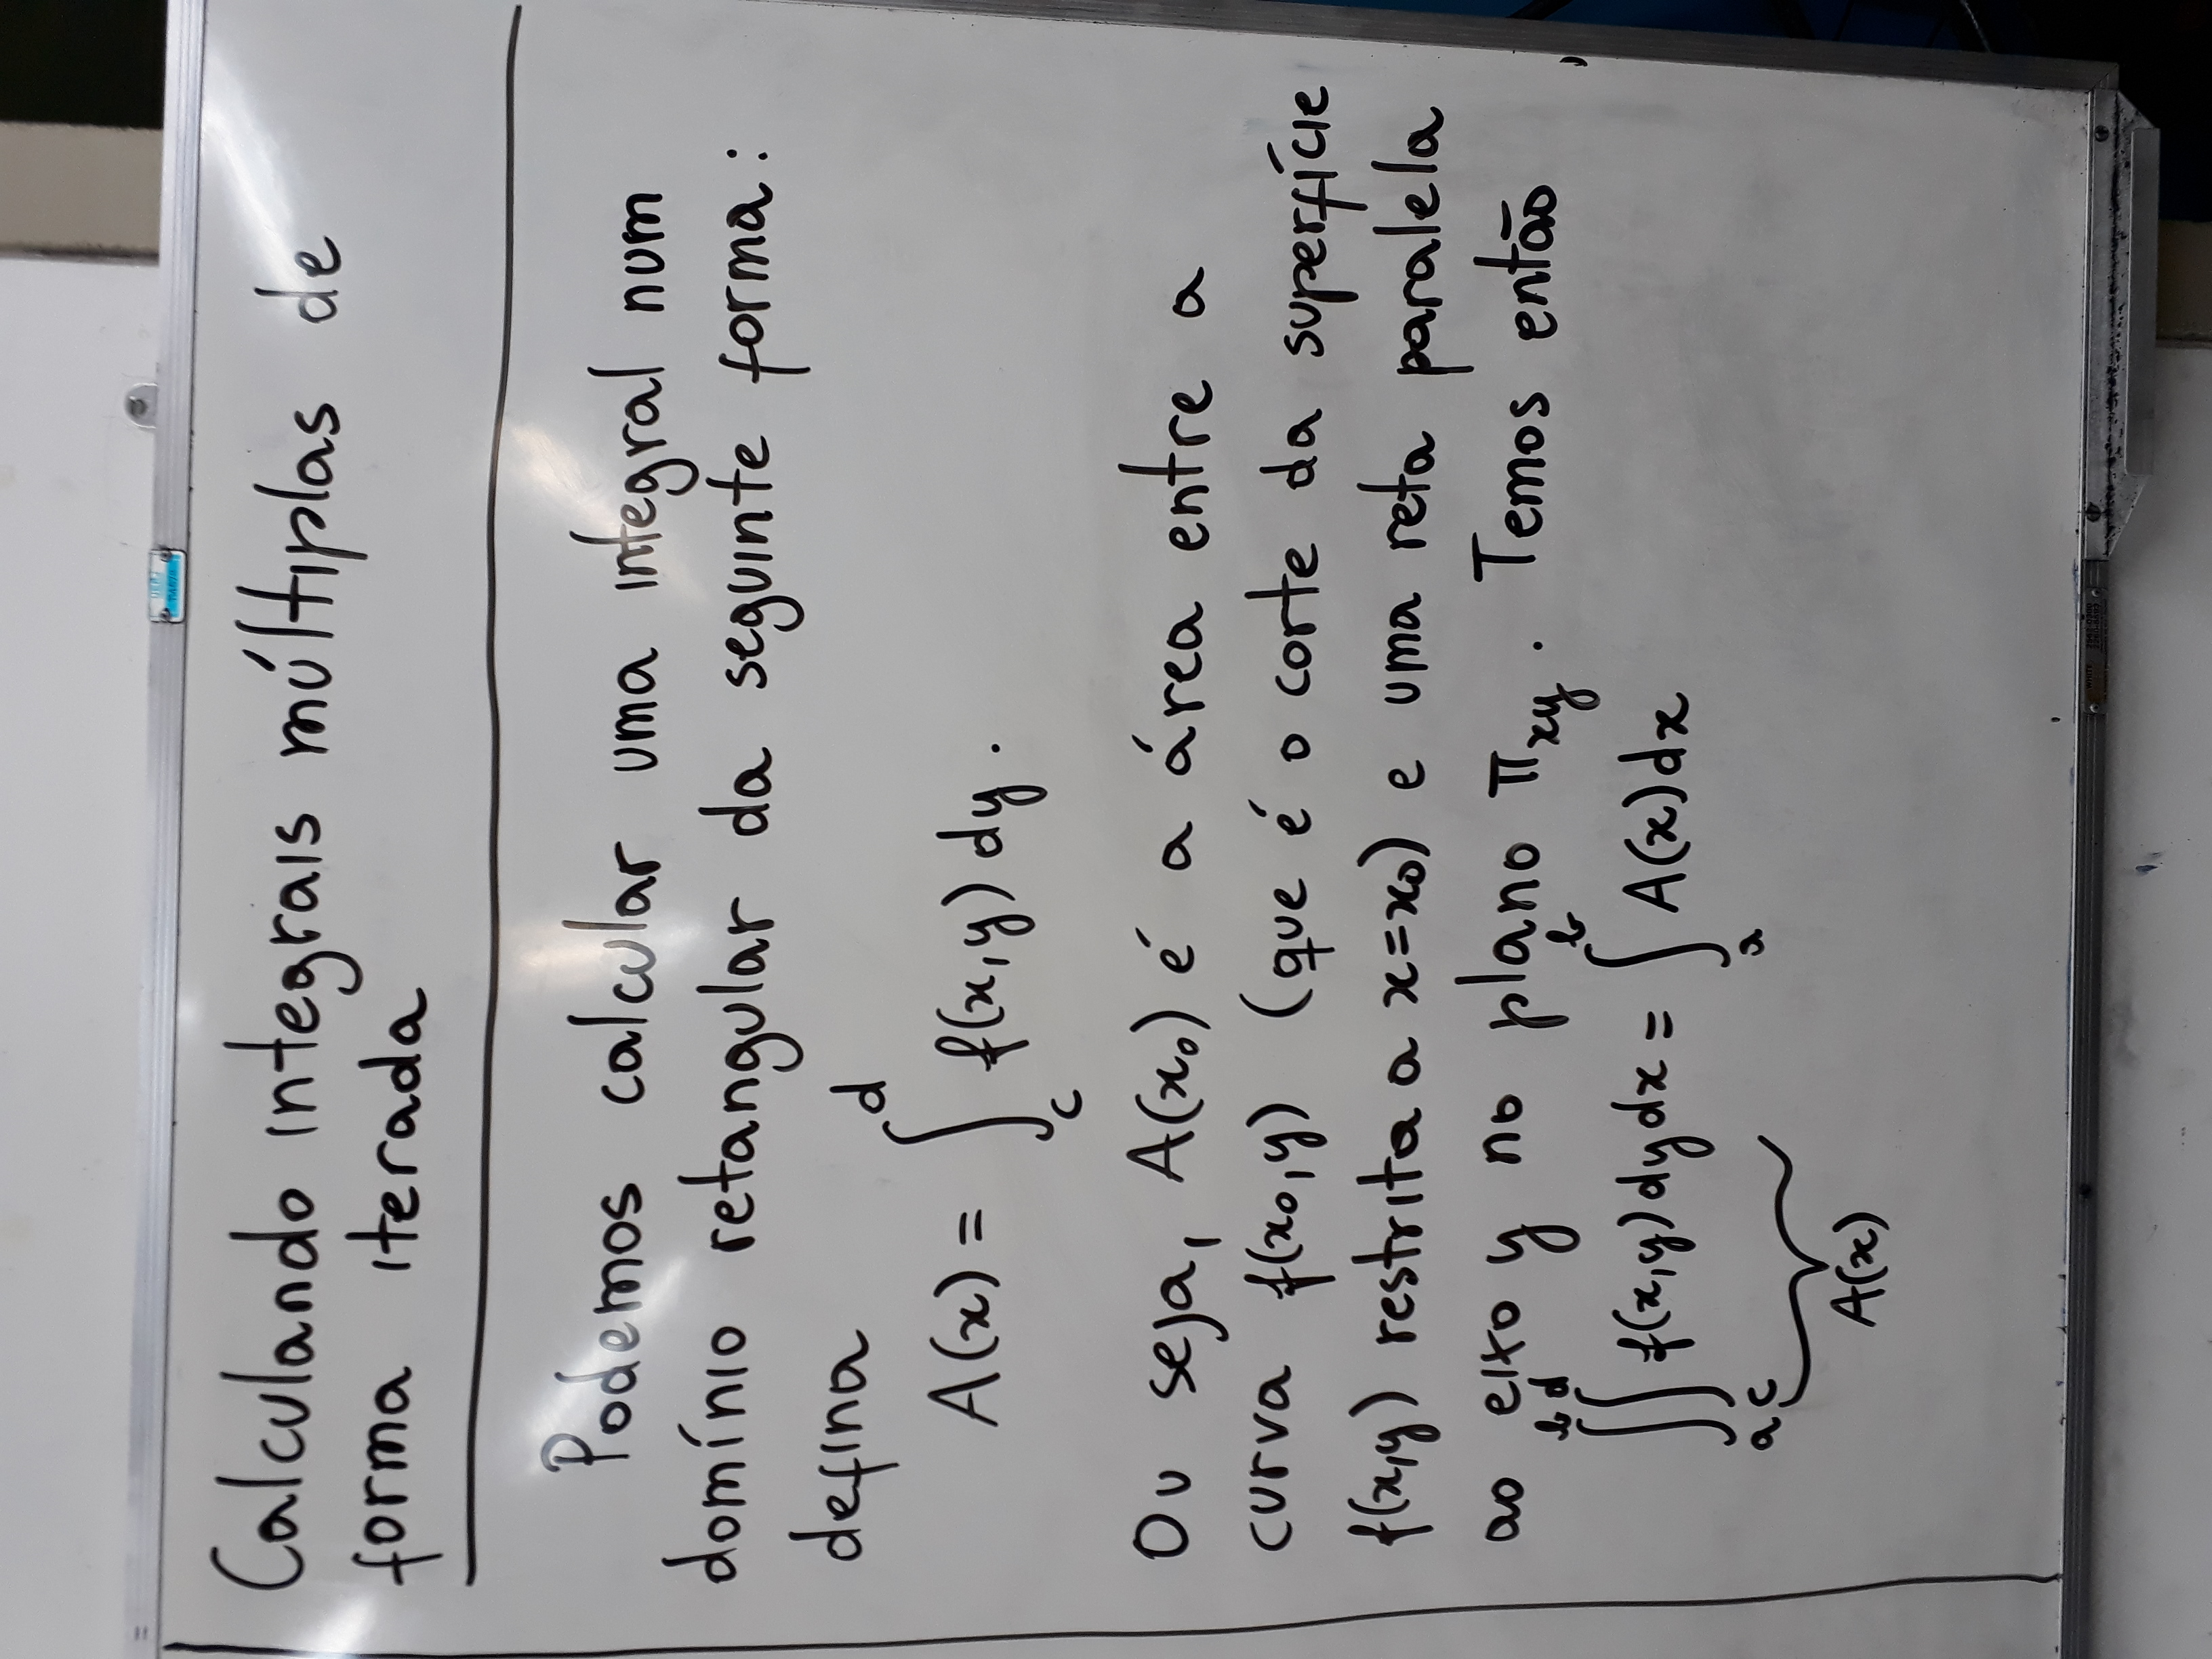 Calculando integrais múltiplas de
forma iterada
Podemos calcular uma integral num
domínio retangular da seguinte forma:
defina
A(x) = ∫_c^d f(x,y) dy.
Ou seja, A(x₀) é a área entre a
curva f(x₀,y) (que é o corte da superfície
f(x,y) restrita a x=x₀) e uma reta paralela
ao eixo y no plano π_xy. Temos então
∫_a^b ∫_c^d f(x,y) dy dx = ∫_a^b A(x) dx
A(x)